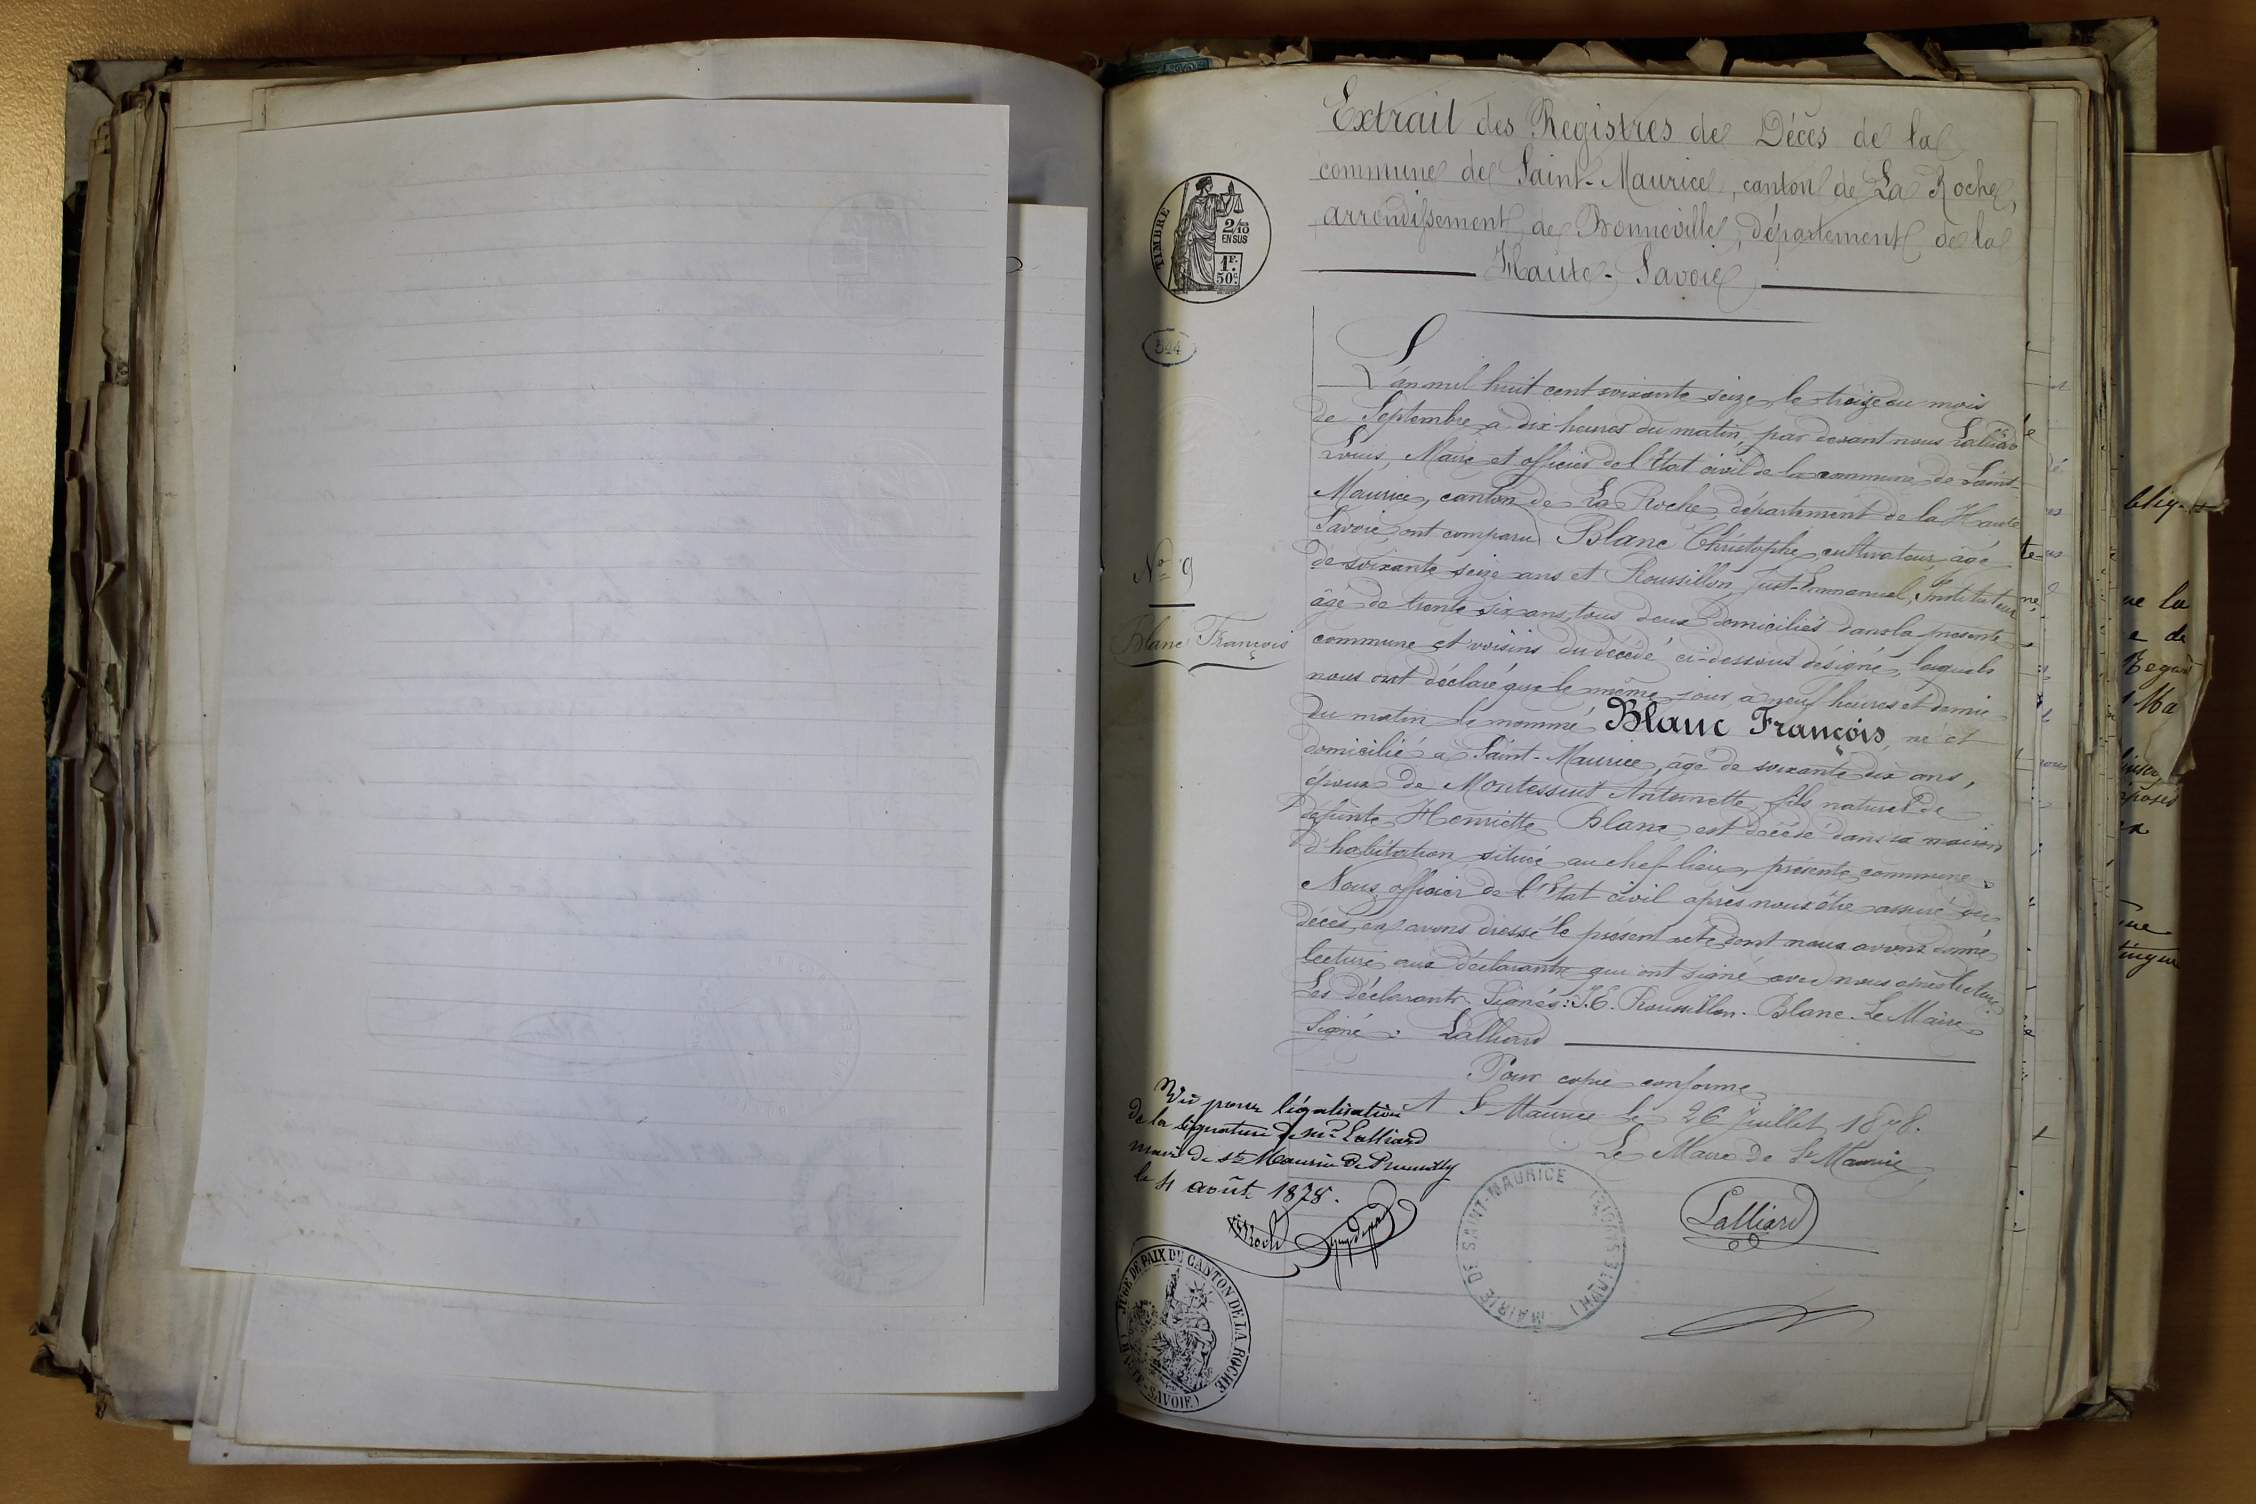 Extrait des Registres de Décès de la
commune de Saint-Maurice, canton de La Roche,
arrondissement de Bonneville, département de la
Haute-Savoie
TIMBRE
2/10
EN SUS
1F.
50c.
544
L'an mil huit cent soixante seize, le treize du mois
de Septembre, à dix heures du matin, par devant nous Lalliard
Louis, Maire et officier de l'Etat civil de la commune de Saint-
Maurice, canton de La Roche, département de la Haute
Savoie, ont comparu Blanc Christophe, cultivateur, âgé
de soixante seize ans et Roussillon, Just-Emmanuel, Instituteur
âgé de trente six ans, tous deux domiciliés dans la présente
commune et voisins du décédé ci-dessous désigné, lesquels
nous ont déclaré que le même jour, à neuf heures et demie
du matin le nommé Blanc François, né et
domicilié à Saint-Maurice, âgé de soixante dix ans,
époux de Montessuit Antoinette, fils naturel de
défunte Henriette Blanc, est décédé dans sa maison
d'habitation située au chef lieu, présente commune.
Nous officier de l'Etat civil après nous être assuré du
décès, en avons dressé le présent acte dont nous avons donné
lecture aux déclarants qui ont signé avec nous après lecture.
Les déclarants. Signés: J. E. Roussillon. Blanc. Le Maire
Signé: Lalliard
No 9
Blanc François
Pour copie conforme
A St Maurice le 26 Juillet 1878.
Le Maire de St Maurice
Lalliard
Vu pour légalisation
de la signature de Mr Lalliard
maire de St Maurice de Rumilly
le 4 août 1878.
MAIRIE DE SAINT-MAURICE (HAUTE SAVOIE)
JUGE DE PAIX DU CANTON DE LA ROCHE
(HTE-SAVOIE)